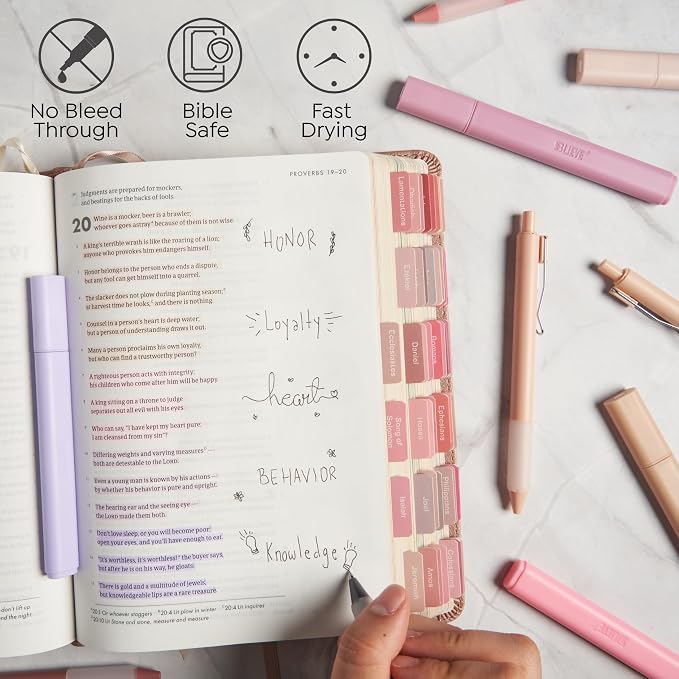 No Bleed
Through
Bible
Safe
Fast
Drying
PROVERBS 19–20
Judgments are prepared for mockers,
and beatings for the backs of fools.
20 Wine is a mocker, beer is a brawler;
whoever goes astray because of them is not wise.
A king's terrible wrath is like the roaring of a lion;
anyone who provokes him endangers himself.
Honor belongs to the person who ends a dispute,
but any fool can get himself into a quarrel.
The slacker does not plow during planting season;
at harvest time he looks, and there is nothing.
Counsel in a person's heart is deep water;
but a person of understanding draws it out.
Many a person proclaims his own loyalty,
but who can find a trustworthy person?
A righteous person acts with integrity;
his children who come after him will be happy.
A king sitting on a throne to judge
separates out all evil with his eyes.
Who can say, "I have kept my heart pure;
I am cleansed from my sin"?
Differing weights and varying measures —
both are detestable to the LORD.
Even a young man is known by his actions —
by whether his behavior is pure and upright.
The hearing ear and the seeing eye —
the LORD made them both.
Don't love sleep, or you will become poor;
open your eyes, and you'll have enough to eat.
"It's worthless, it's worthless!" the buyer says,
but after he is on his way, he gloats.
There is gold and a multitude of jewels,
but knowledgeable lips are a rare treasure.
20:1 Or whoever staggers 20:4 Lit plow in winter 20:4 Lit inquires
20:10 Lit Stone and stone, measure and measure
HONOR
Loyalty
heart
BEHAVIOR
Knowledge
Lamentations
Ezekiel
Ecclesiastes
Daniel
Romans
Song of
Solomon
Hosea
Ephesians
Isaiah
Joel
Philippians
Jeremiah
Amos
Colossians
don't lift up
and the night
BLIEVE